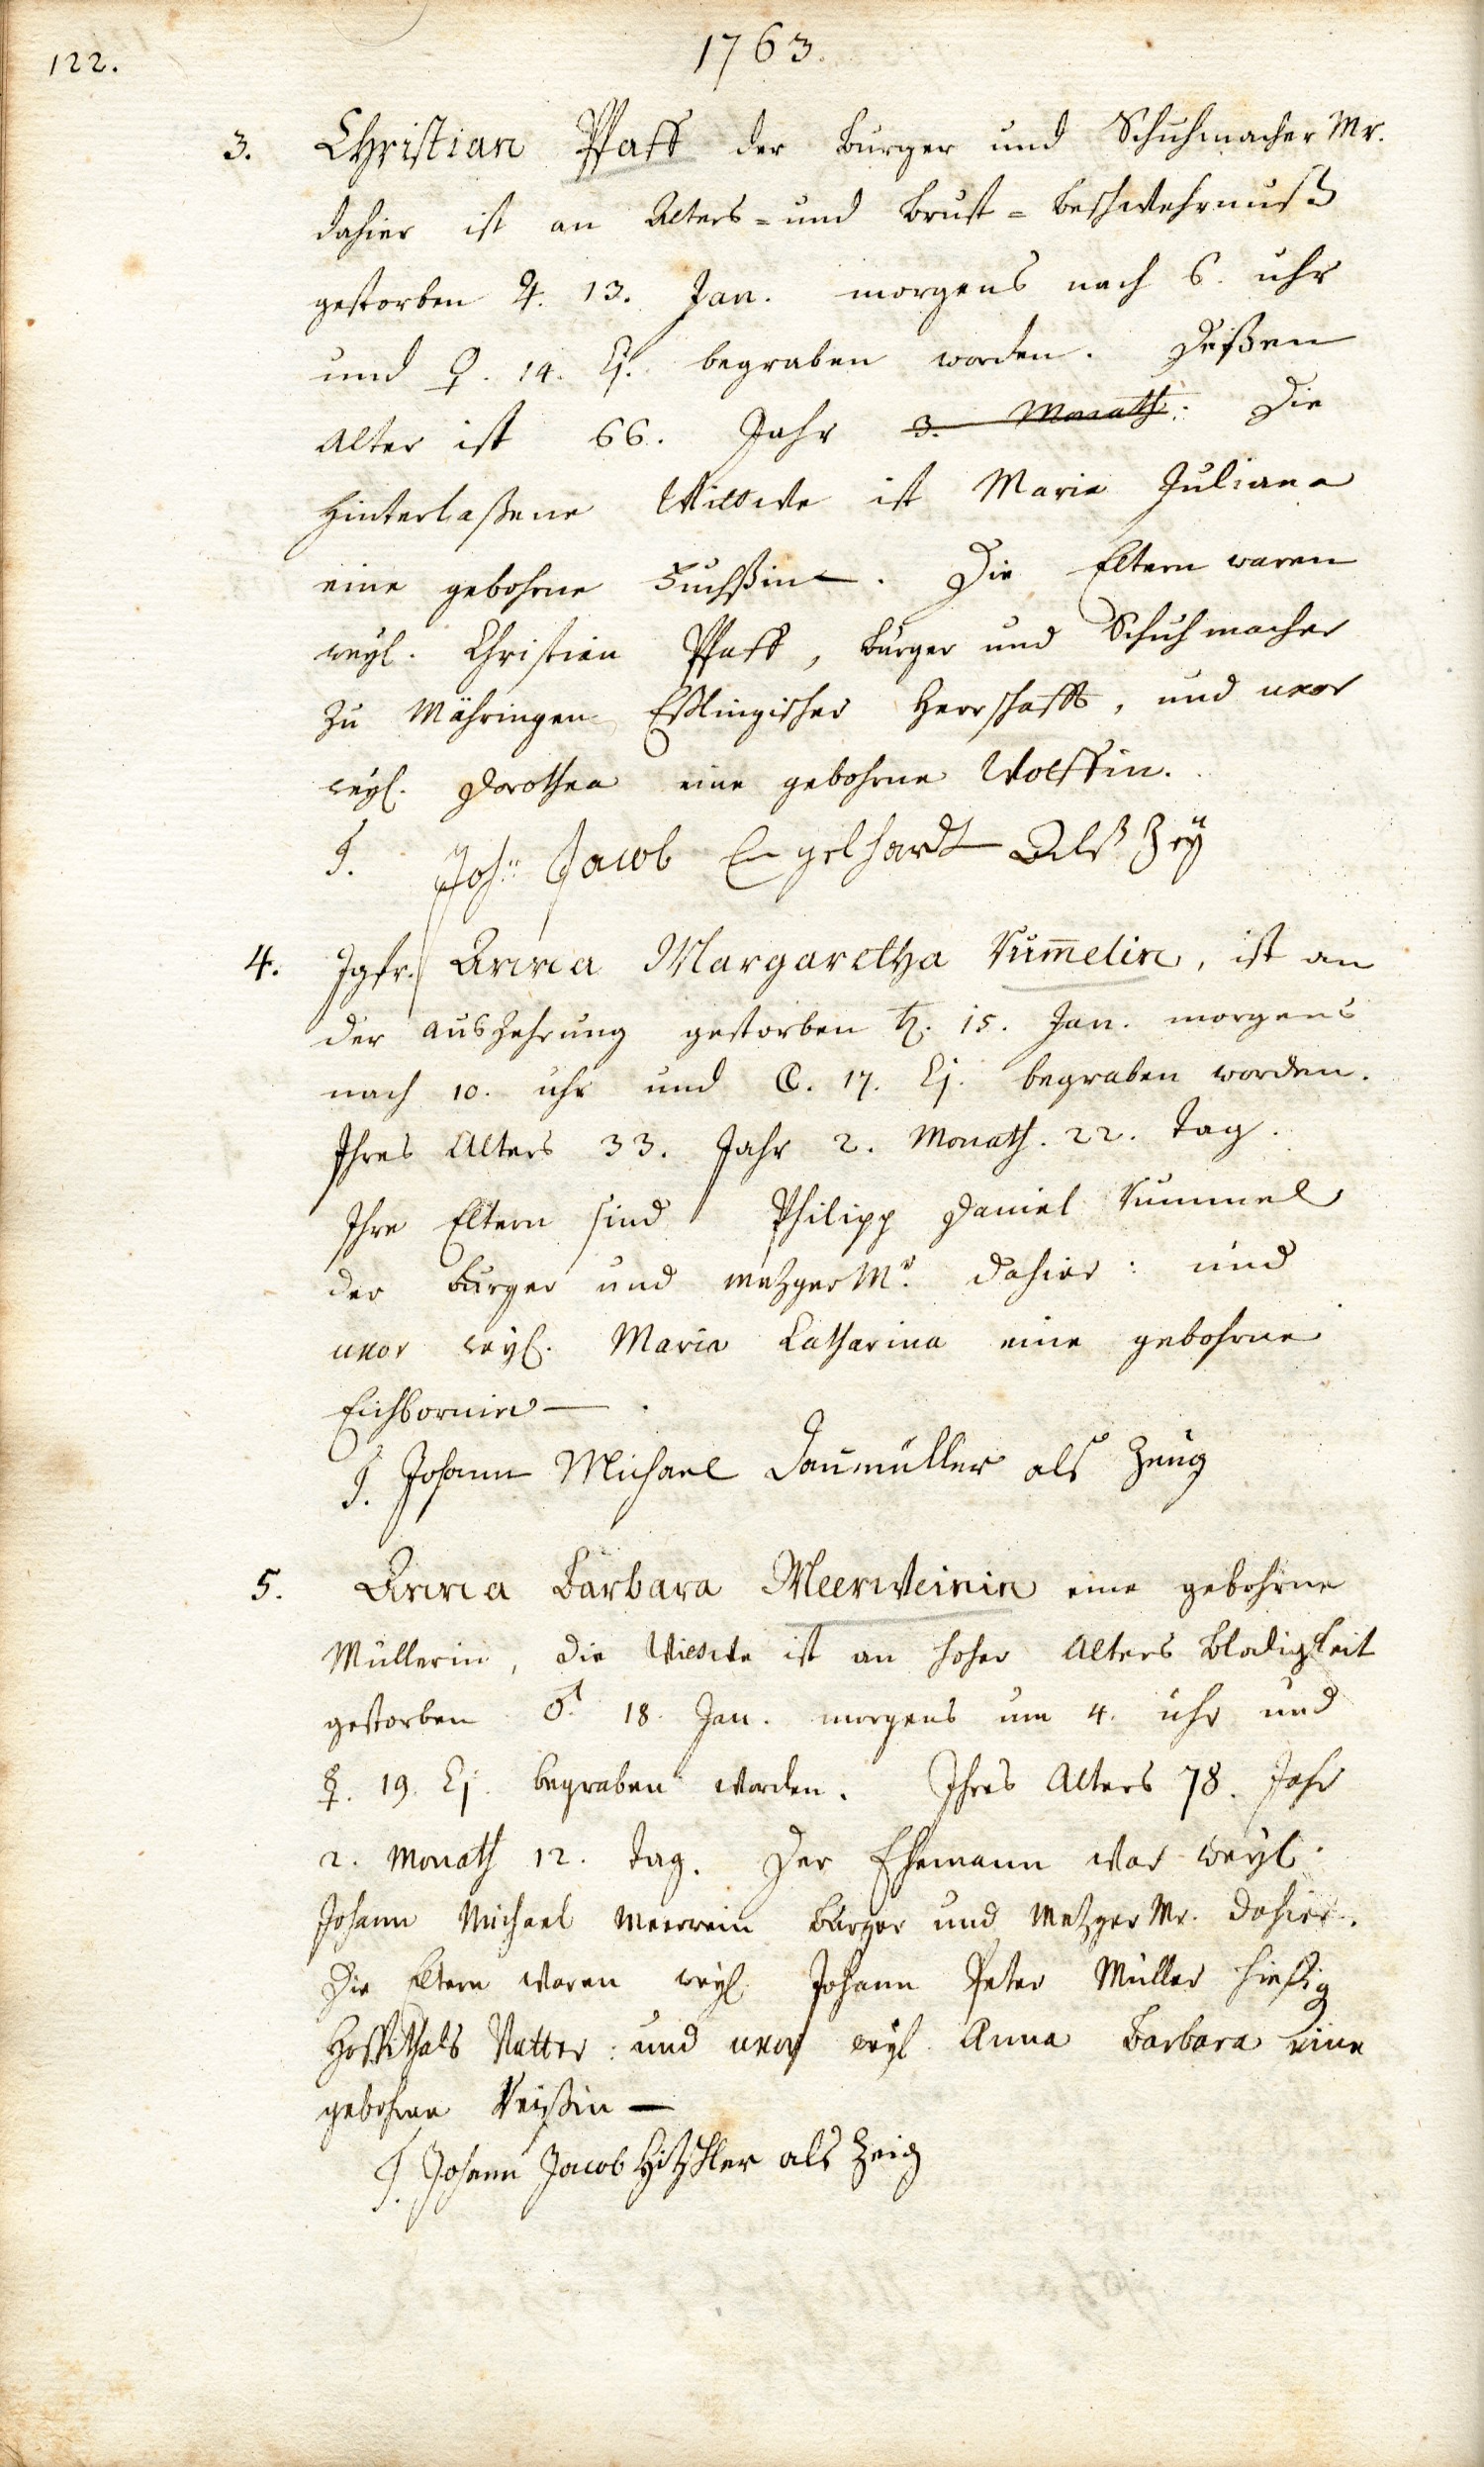 122.
1763.
3. Christian Pfaff der burger und Schuhmacher Mr.
dahier ist an Alters- und Brust-beschwehrnuß
gestorben ♃. 13. Jan. morgens nach 6. uhr
und ♀. 14. Ej. begraben worden. Deßen
Alter ist 66. Jahr 3. Monath: Die
hinterlaßene Wittwe ist Maria Juliana
eine gebohrne Fuchßin. Die Eltern waren
weyl. Christian Pfaff, burger und Schuhmacher
zu Mähringen Eßlingischer Herrschafft, und uxor
weyl. Dorothea eine gebohrne Wolffin.
T. Joh: Jacob Engelhardt Alß Zey
4. Jgfr. Anna Margaretha Rum̄elin, ist an
der auszehrung gestorben ♄. 15. Jan. morgens
nach 10. uhr und ☾. 17. Ej. begraben worden.
Ihres Alters 33. Jahr 2. Monath. 22. tag.
Ihre Eltern sind Philipp Daniel Rummel
der burger und metzger Mr. dahier: und
uxor weyl. Maria Catharina eine gebohrne
Eichbornin
T. Johann Michael Daumüller als Zeug
5. Anna Barbara Meerweinin eine gebohrne
Müllerin, die Wittwe ist an hoher Alters Blödigkeit
gestorben ♂. 18. Jan. morgens um 4. uhr und
☿. 19. Ej. begraben worden. Ihres Alters 78. Jahr
2. Monath 12. tag. Der Ehemann war weyl.
Johann Michael Meerwein burger und Metzger Mr. dahier.
Die Eltern waren weyl. Johann Peter Müller hiesig
Hospithals Vatter: und uxor weyl. Anna Barbara eine
gebohrne Reißin
T. Johann Jacob Hitschler als Zeig